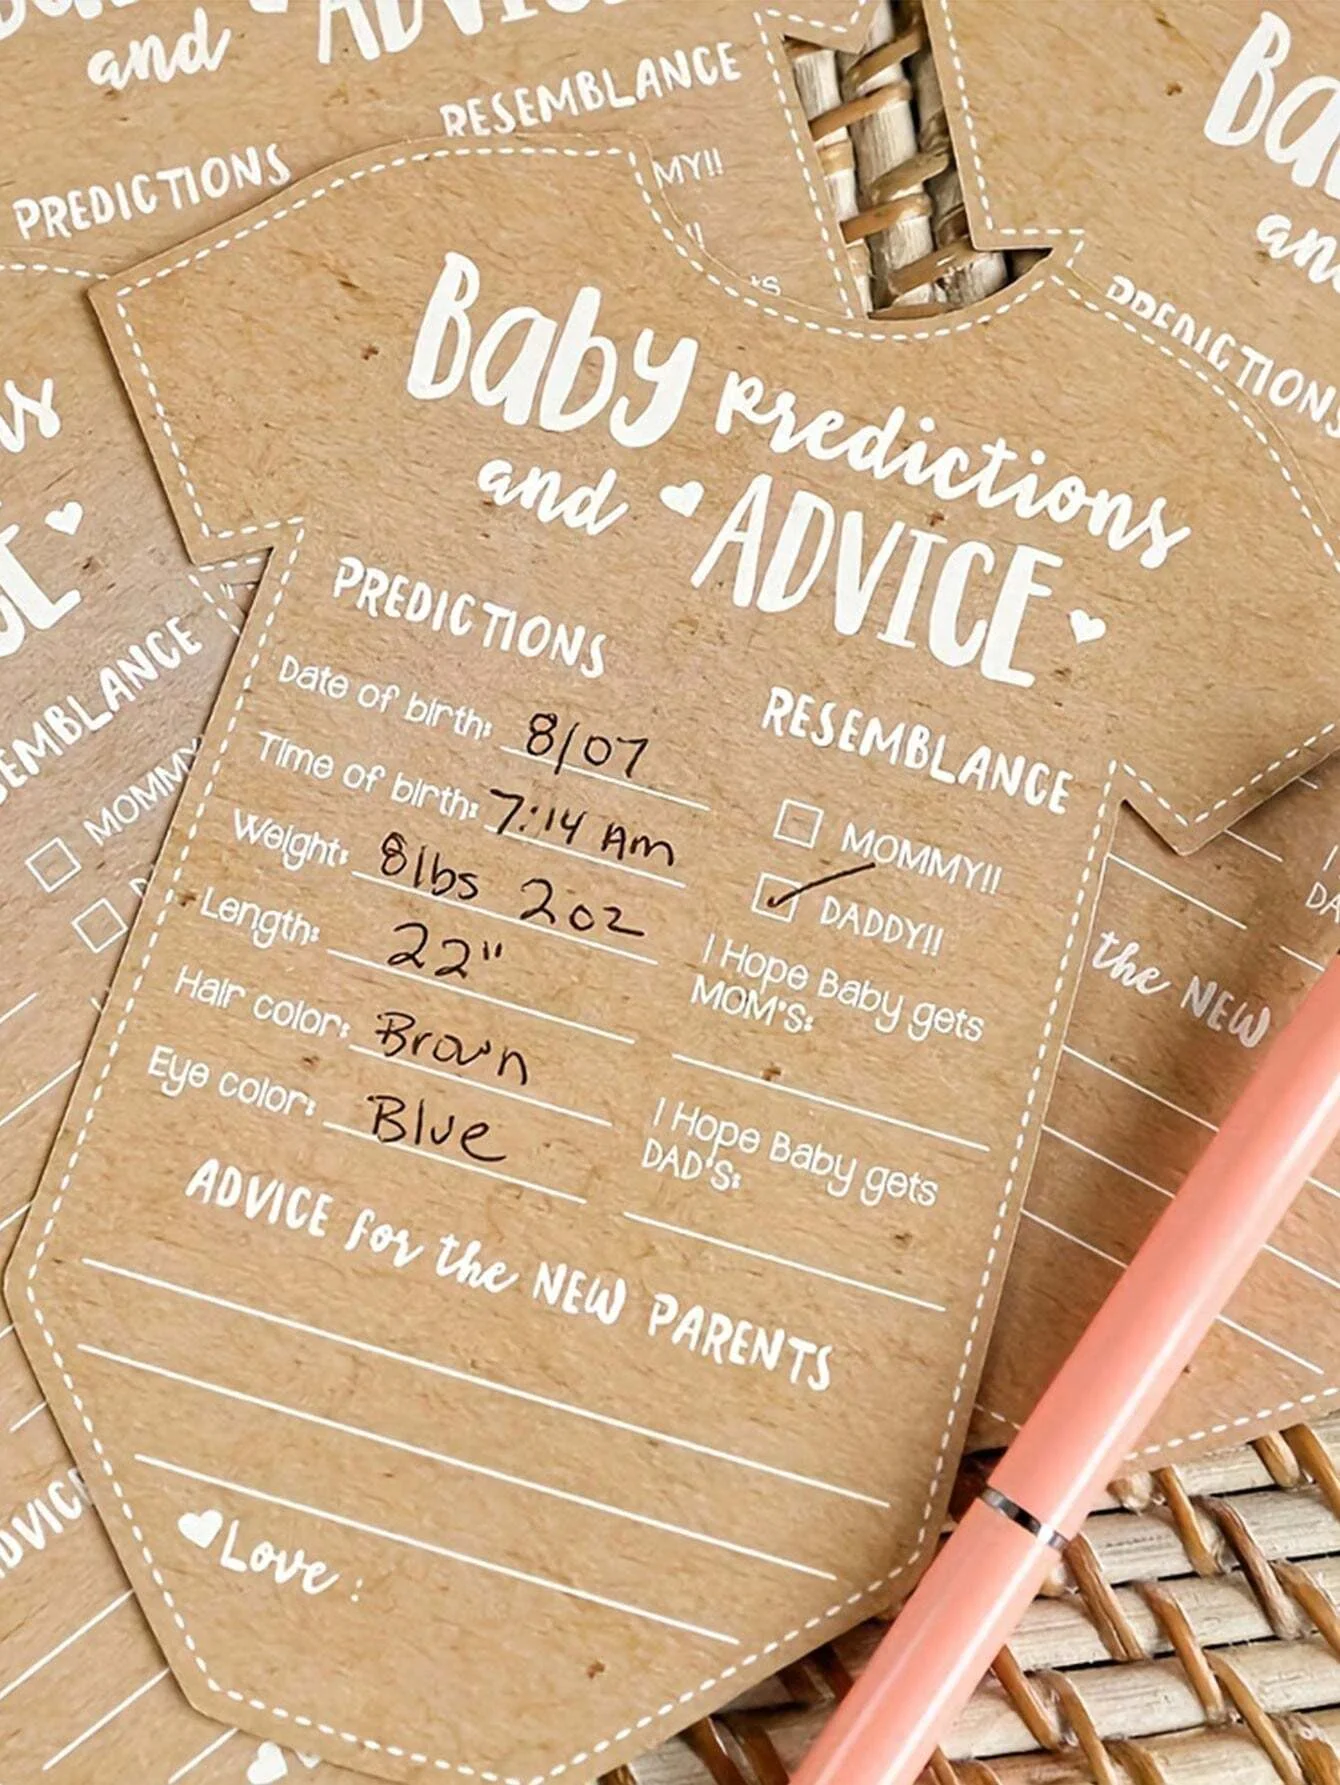 and ADVICE
RESEMBLANCE
PREDICTIONS
MY!!
PREDICTIONS
Baby predictions
and ADVICE
PREDICTIONS
Date of birth: 8/07
Time of birth: 7:14 Am
Weight: 8lbs 2oz
Length: 22"
Hair color: Brown
Eye color: Blue
RESEMBLANCE
MOMMY!!
DADDY!!
I Hope Baby gets
MOM'S:
I Hope Baby gets
DAD'S:
ADVICE for the NEW PARENTS
Love :
EMBLANCE
MOMMY
the NEW
DVIC